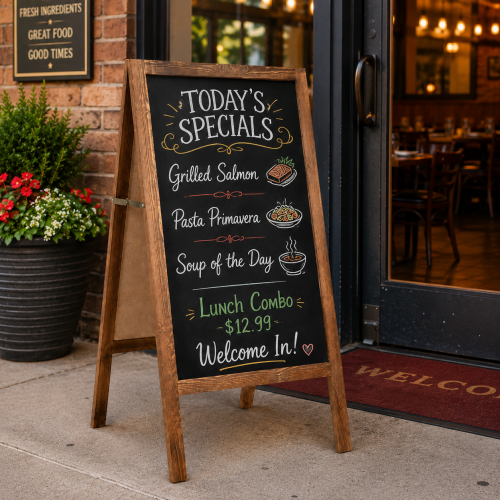 FRESH INGREDIENTS
GREAT FOOD
GOOD TIMES
TODAY'S
SPECIALS
Grilled Salmon
Pasta Primavera
Soup of the Day
LUNCH COMBO
- $12.99 -
Welcome In!
WELCO